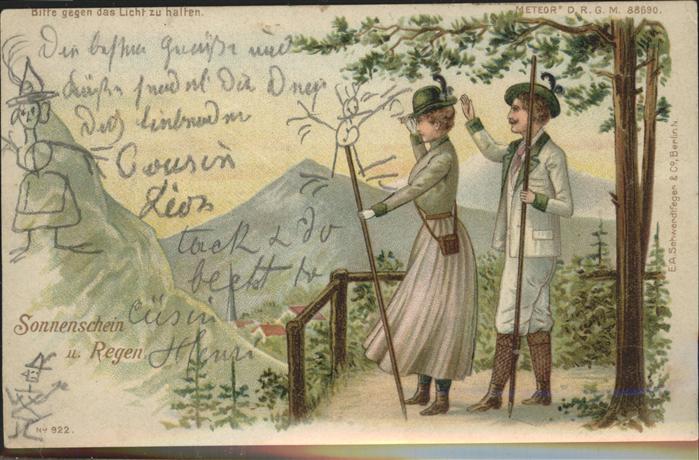 Bitte gegen das Licht zu halten.
METEOR D. R. G. M. 88690.
Die besten Grüße und
Küße sendet Dir
Dich liebender
Cousin
Leon
Sonnenschein
u. Regen.
cüsin
Henri
No 922.
E.A. Schwerdtfeger & Co, Berlin N.